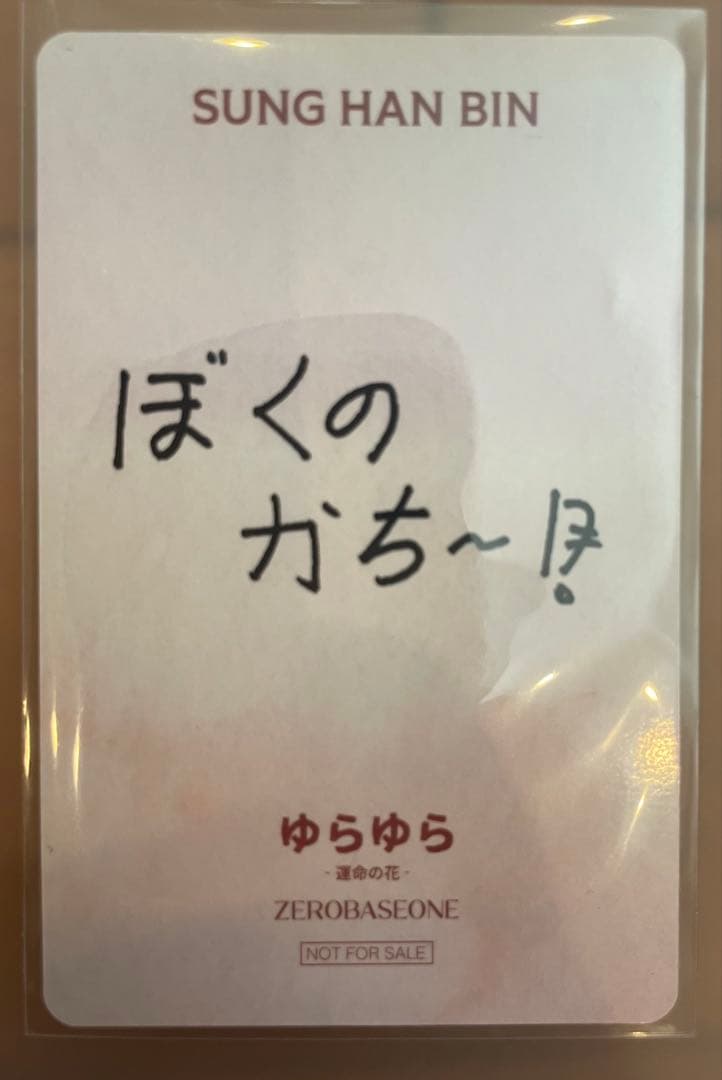 SUNG HAN BIN
ぼくの
かち～
ゆらゆら
- 運命の花 -
ZEROBASEONE
NOT FOR SALE